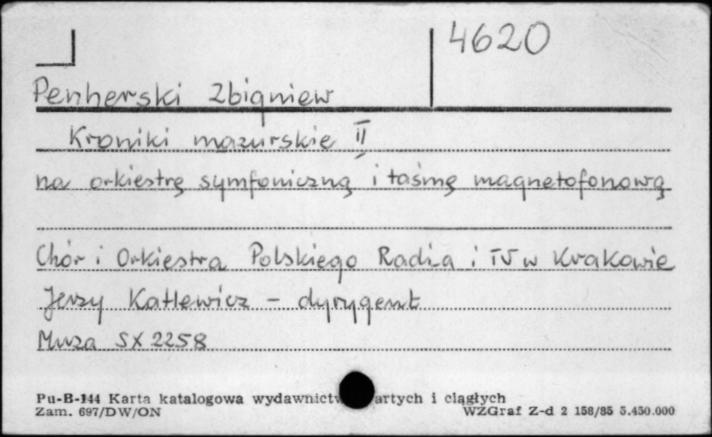 4620
Penherski Zbigniew
Kroniki mazurskie II
na orkiestrę symfoniczną i taśmę magnetofonową
Chór i Orkiestra Polskiego Radia i TV w Krakowie
Jerzy Katlewicz - dyrygent
Muza SX 2258
Pu-B-144 Karta katalogowa wydawnictw artych i ciągłych
Zam. 697/DW/ON WZGraf Z-d 2 158/85 5.450.000